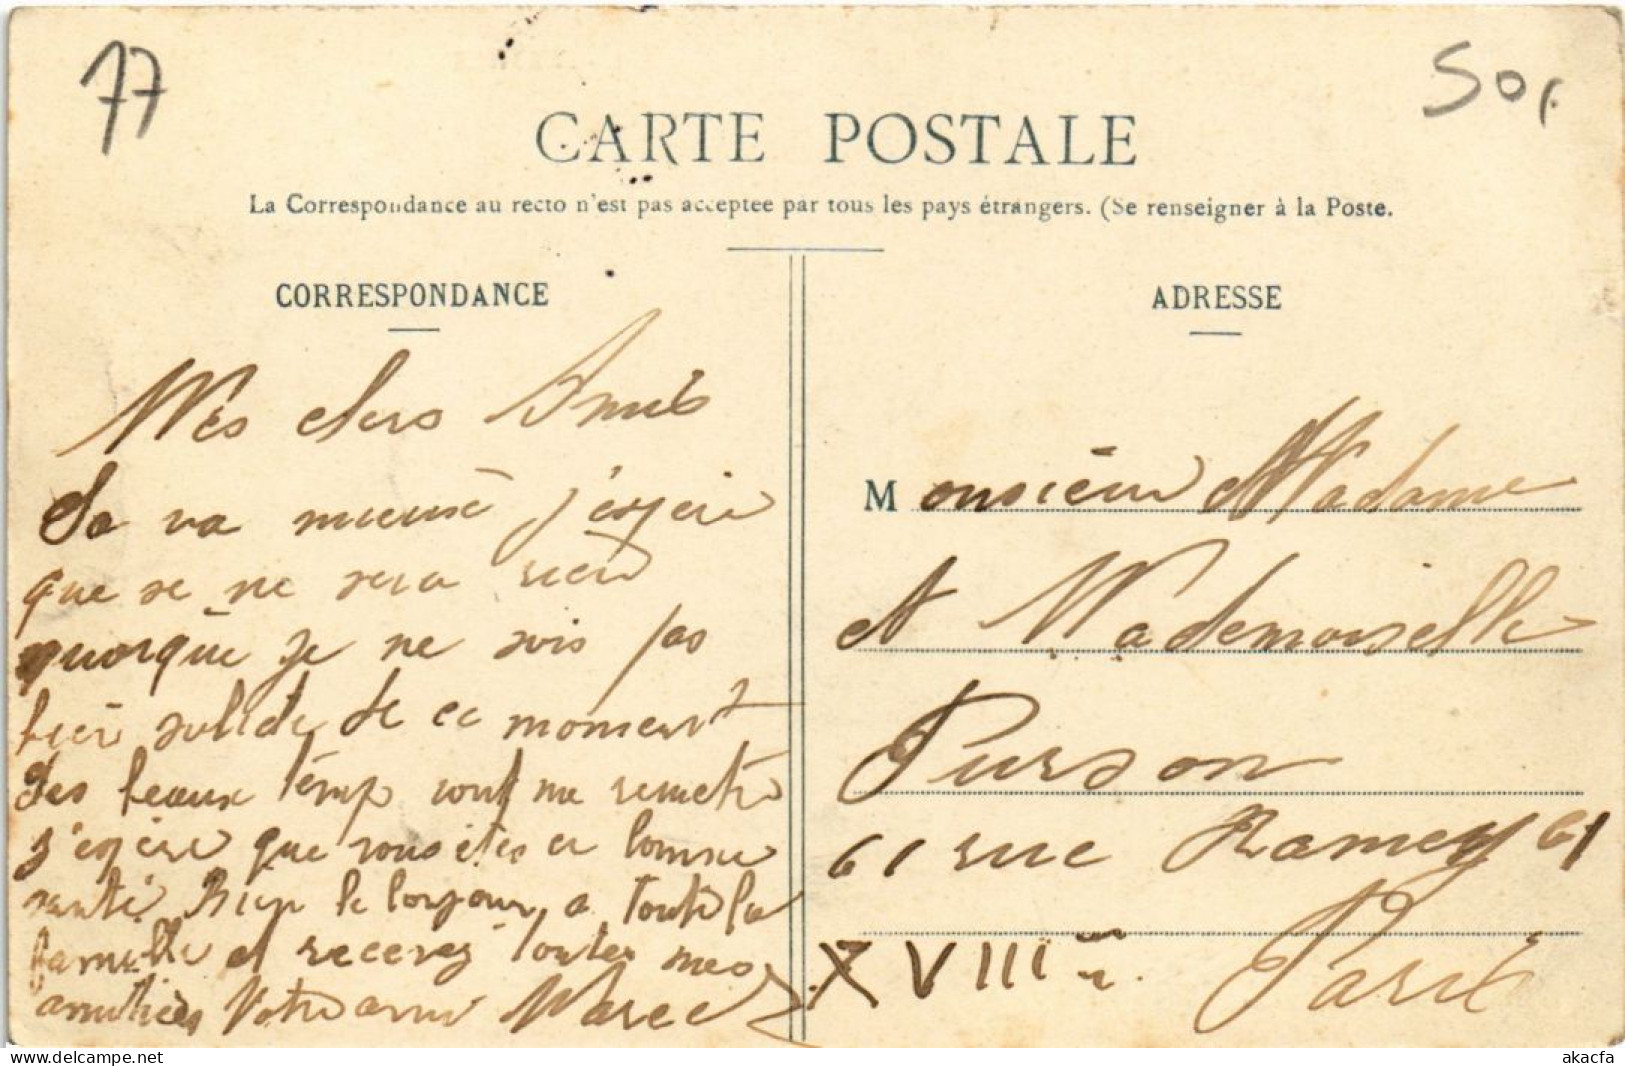 77
50f
CARTE POSTALE
La Correspondance au recto n'est pas acceptée par tous les pays étrangers. (Se renseigner à la Poste.
CORRESPONDANCE
Mes chers Amis
Sa va mieux j'espère
que se ne sera rien
quoique je ne suis pas
bien solide de ce moment
des beaux temp vont me remetre
j'espère que vous êtes en bonne
santé Bien le bonjour a toute la
famille et recevez toutes mes
amitiées Votre ami Marcel
ADRESSE
Monsieur Madame
et Mademoiselle
Purson
61 rue Ramey 61
XVIII Paris
akacfa